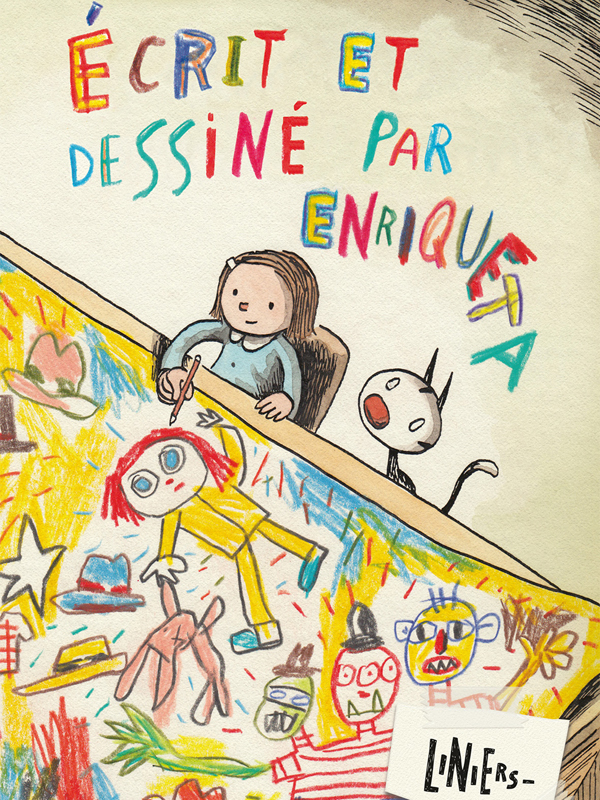 ÉCRIT ET
DESSiNÉ PAR
ENRIQUETA
LiNiERS-